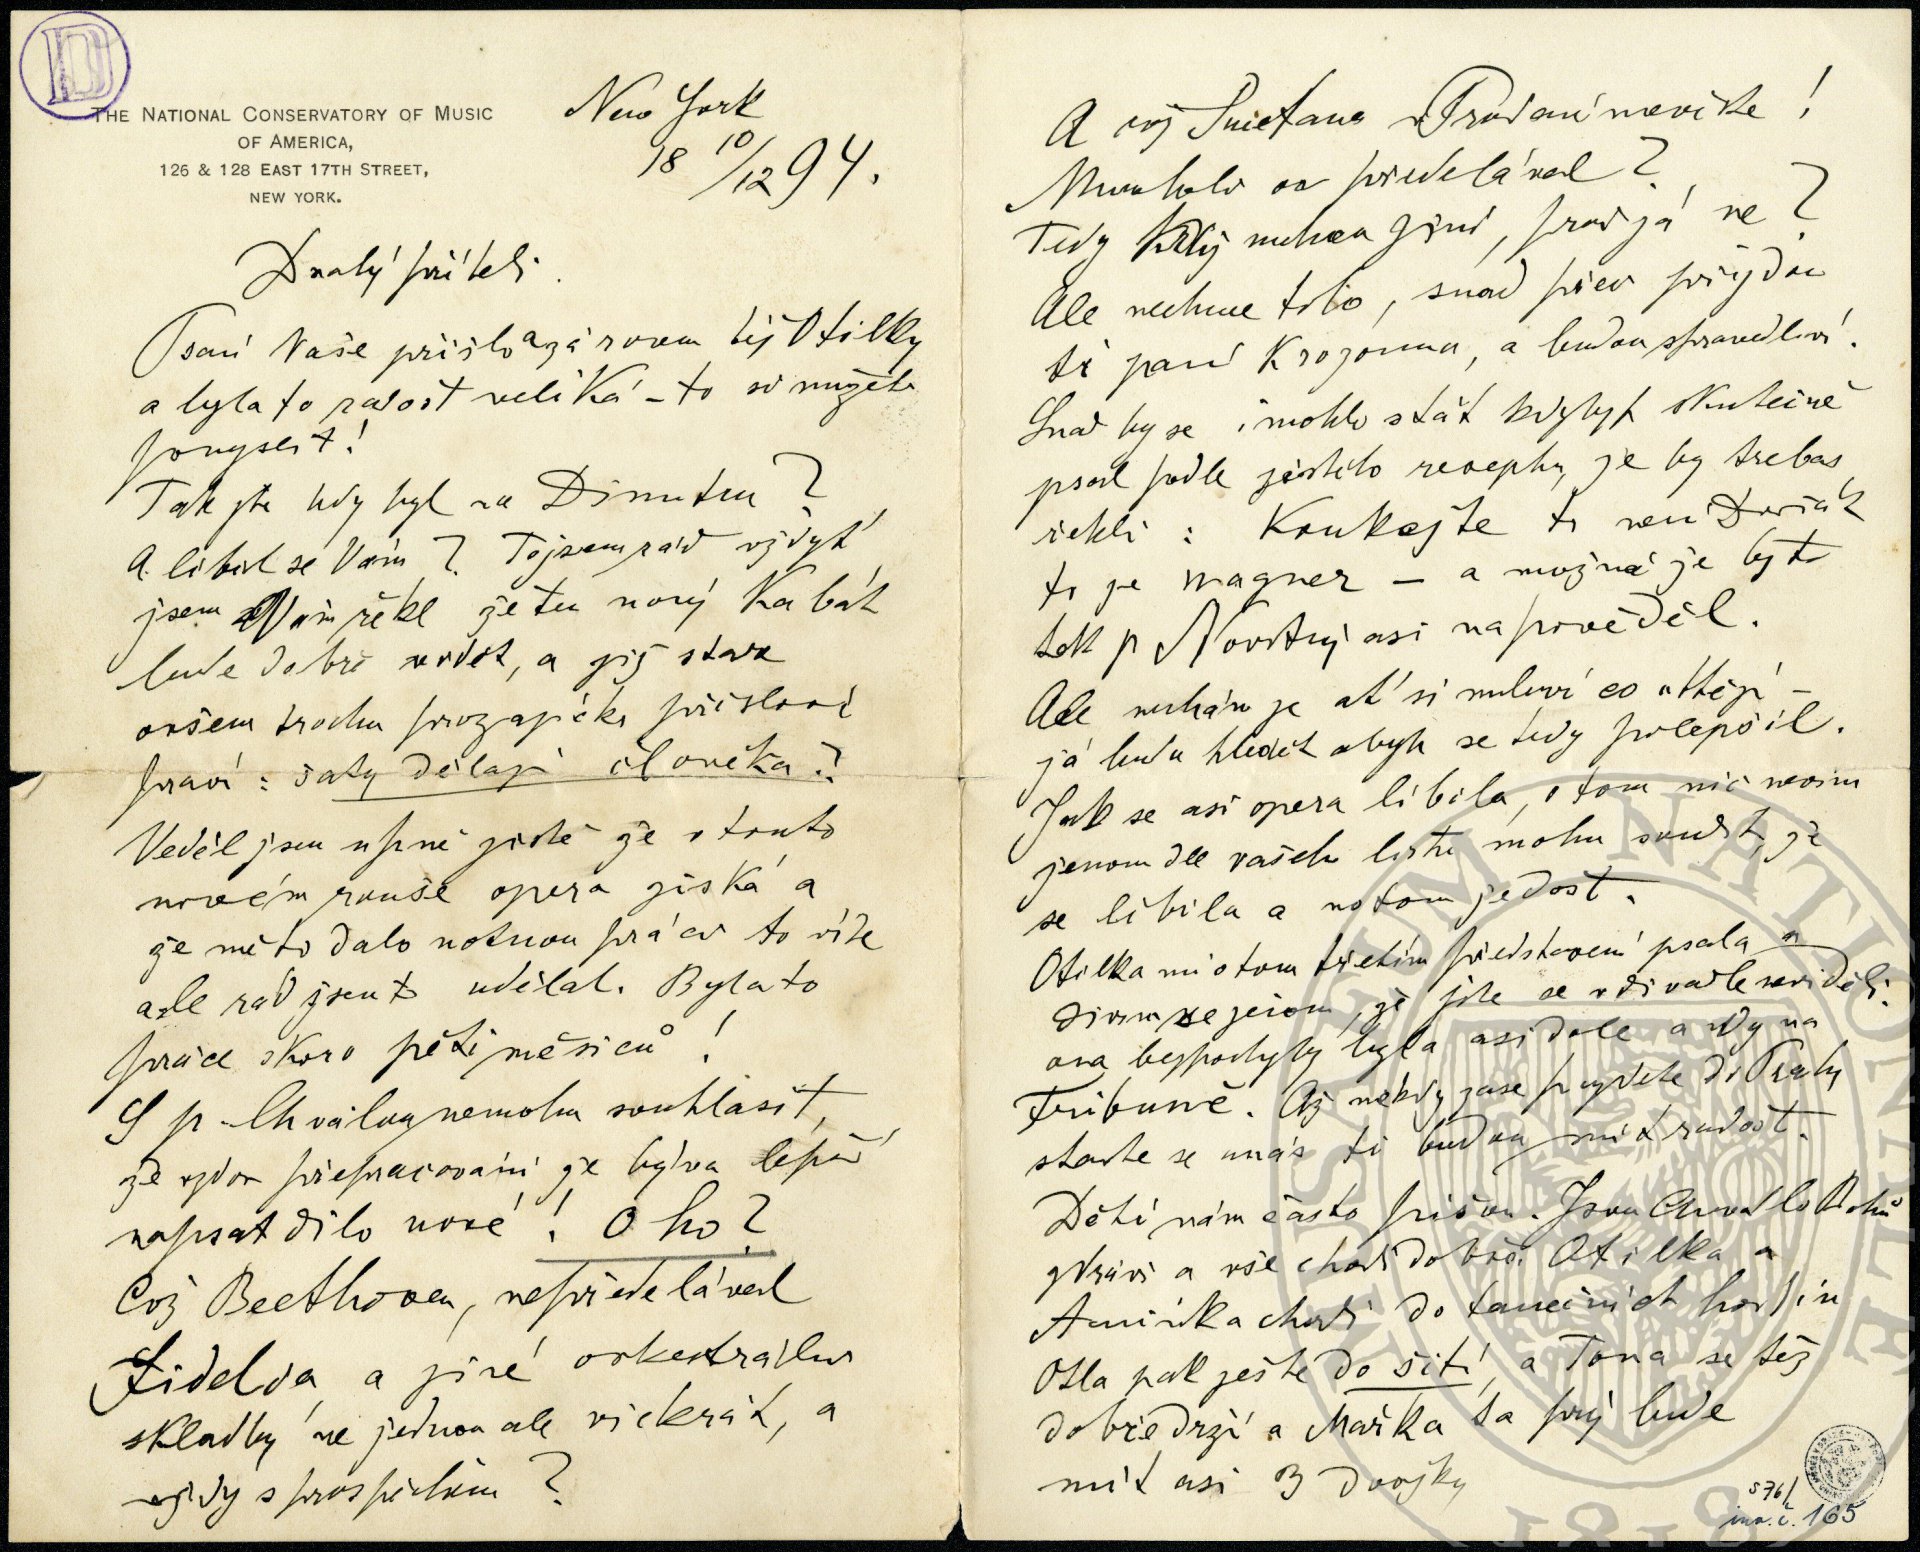 THE NATIONAL CONSERVATORY OF MUSIC
OF AMERICA,
126 & 128 EAST 17TH STREET,
NEW YORK.
New York
18 10/12 94.
Drahý příteli.
Psaní Vaše přišlo zároveň též Otilky
a byla to radost veliká – to si můžete
pomyslit!
Tak jste tedy byl na Dimitru?
A líbil se Vám? To jsem rád vždyť
jsem Vám řekl že ten nový Kabát
bude dobře vidět, a již staré
ovšem trochu prozajické přísloví
praví: šaty dělají člověka?
Věděl jsem úplně jistě že v tomto
novém rouše opera získá a
že mě to dalo notnou práci to víte
ale rád jsem to udělal. Byla to
práce skoro pěti měsíců!
S p. Chválou nemohu souhlasit,
že vzdor přepracování že bývá lepší
napsat dílo nové! Oho?
Což Beethoven, nepředelával
Fidelia, a jiné orkestrální
skladby ne jednou ale víckrát, a
vždy s prospěchem?
A což Smetana Prodaní nevíste!
Mnoholi on předelával?
Tedy Když mohou jiní, proč já ne?
Ale nechme toho, snad přece přijdou
ti paní K rozoumu, a budou spravedliví.
Snad by se i mohlo stát kdybych skutečně
psal podle jistého receptu, že by třebas
řekli: Koukejte to není Dvořák
to je Wagner – a možná že by to
tak p Novotný asi napověděl.
Ale nechám je ať si mluví co chtějí –
já budu hledět abych se tedy polepšil.
Jak se asi opera líbila, o tom nic nevím
jenom dle vašeho listu mohu soudit, že
se líbila a na tom je dost.
Otilka mi o tom třetím představení psala a
divím se jenom, že jste se v divadle neviděli.
ona bezpochyby byla asi dole a Vy na
Tribuně. Až někdy zase přijdete do Prahy
stavte se u nás ti budou mít radost.
Děti nám často píšou. Jsou Chvála Bohu
zdrávi a vše chodí dobře. Otilka a
Aninka chodí do tanečních hodin
Otla pak ještě do šití, a Tona se též
dobře drží a Mařka ta prý bude
mít asi 3 dvojky
576/
inv. č. 165
MUSAEUM NATIONALE
1818